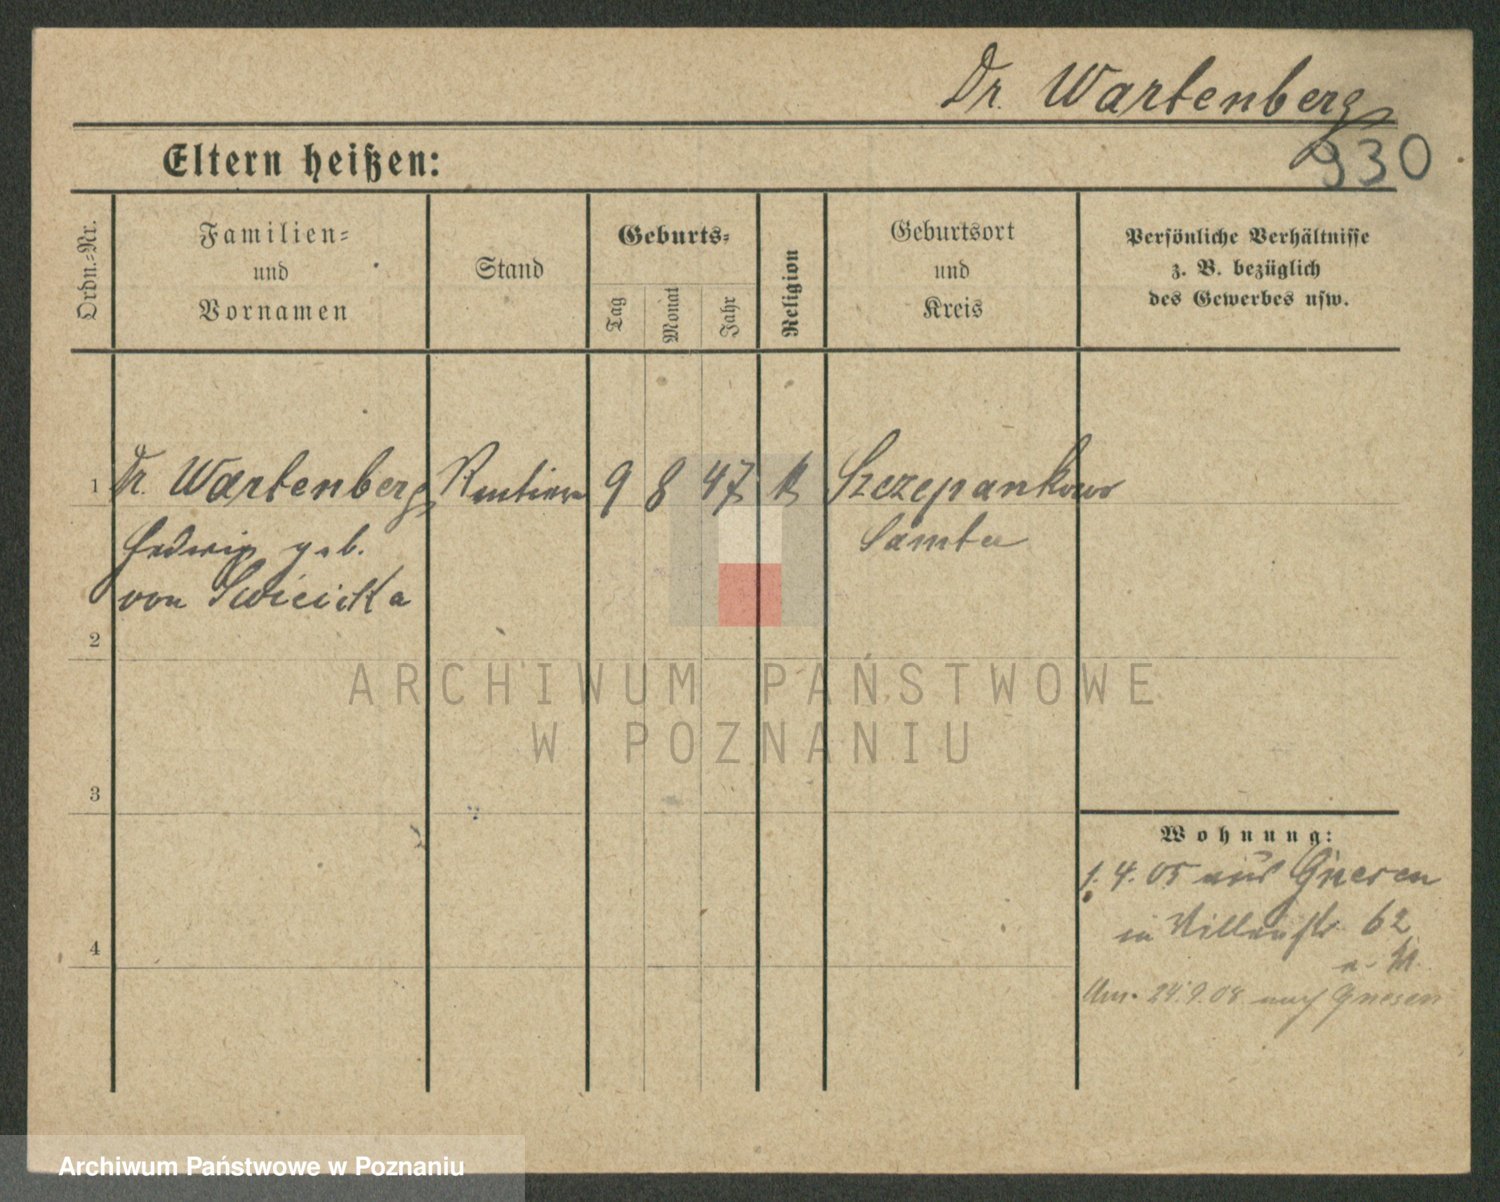 Dr. Wartenberg
930
Eltern heißen:
Ordn.-Nr.
Familien-
und
Vornamen
Stand
Geburts-
Tag
Monat
Jahr
Religion
Geburtsort
und
Kreis
Persönliche Verhältnisse
z. B. bezüglich
des Gewerbes usw.
1 Dr. Wartenberg, Rentiere 9 8 47 k Szczepankowo
Hedwig geb. Samter
von Swicicka
2
3
4
Wohnung:
1. 4. 05 aus Gnesen
in 62
24.9.08 nach Gnesen
ARCHIWUM PAŃSTWOWE
W POZNANIU
Archiwum Państwowe w Poznaniu